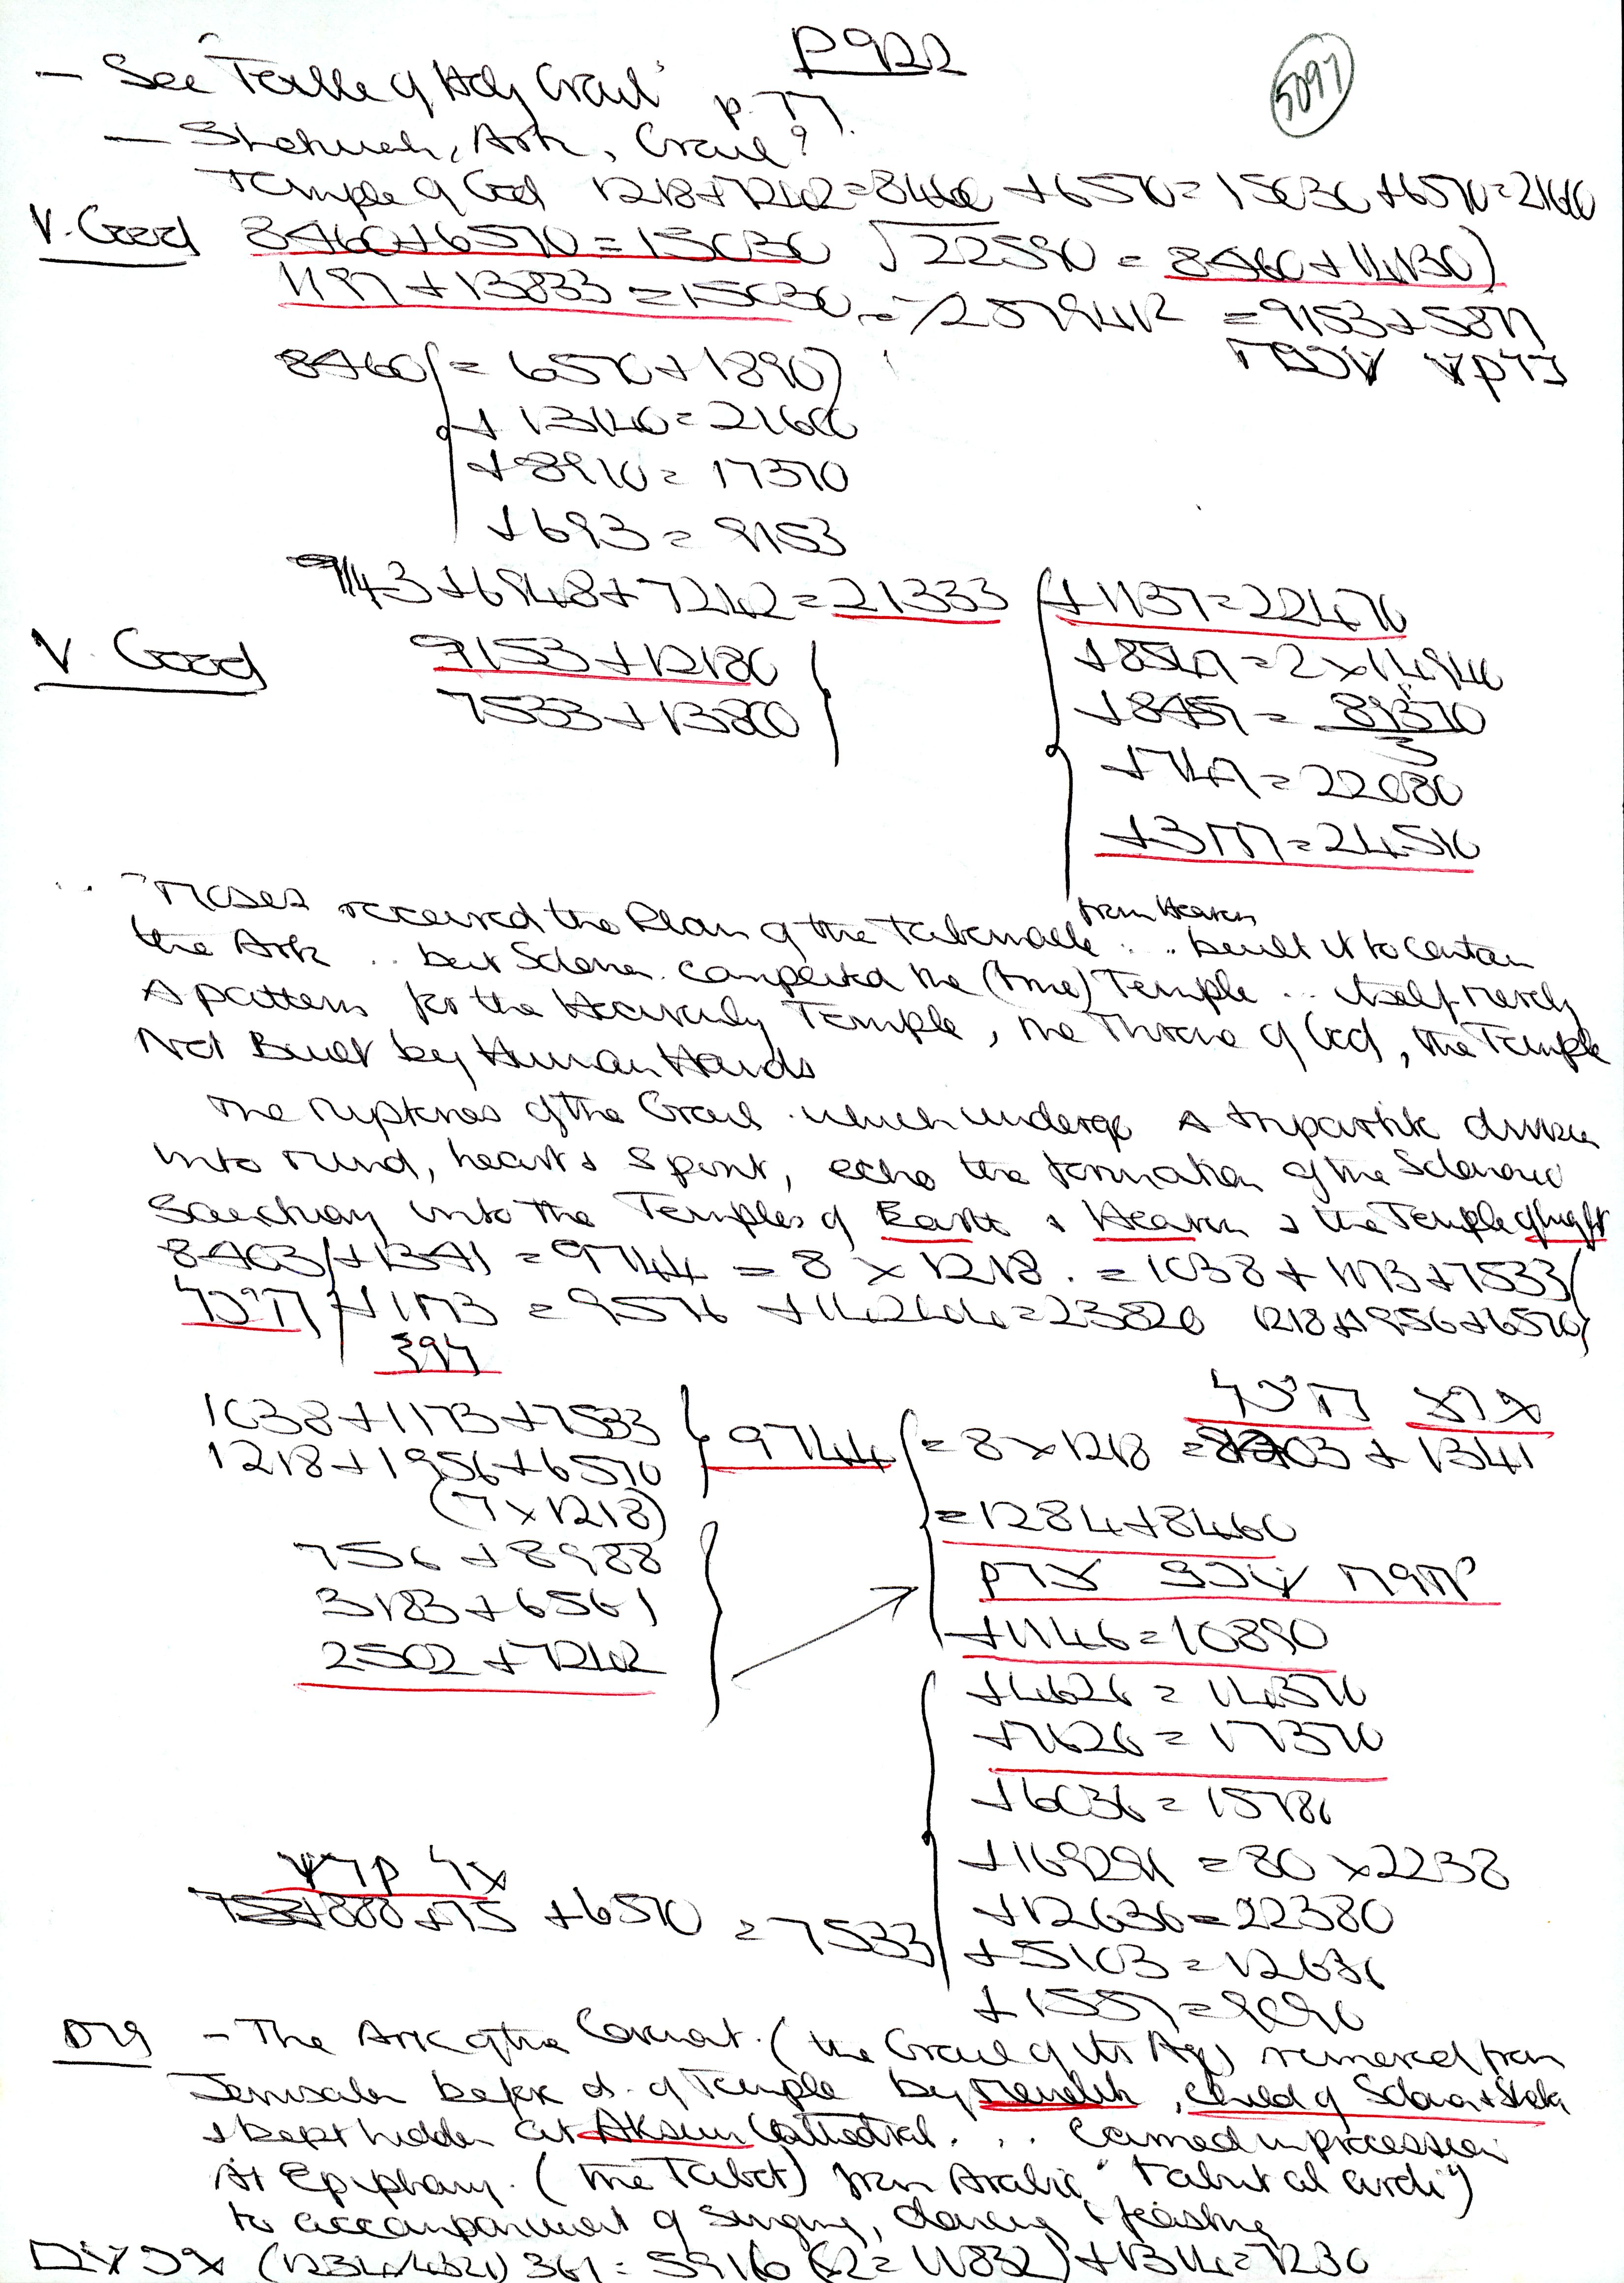 P922
5097
— See Temple of Holy Grail p. 77.
— Shekinah, Ark, Grail?
Temple of God 1218+7242=8460 +6570=15030 +6570=21600
V. Good 8460+6570=15030 √22590 = 8460+14130)
1197+13833=15030 = 9153+5877
8460 = 6570+1890)
+13140=21600
+8910=17370
+693=9153
9143+6948+7242=21333 +1137=22470
V. Good 9153+12180 +8547=2×14940
7533+13800 +8457= 89370/3
+747=22080
+3177=24510
.. Moses received the Plan of the Tabernacle from Heaven .. built it to contain
the Ark .. but Solomon completed the (true) Temple .. itself merely
A pattern for the Heavenly Temple, the Throne of God, the Temple
Not Built by Human Hands
The mysteries of the Grail which undergo a tripartite division
into mind, heart & spirit, echo the formation of the Solomonic
Sanctuary into the Temples of Earth & Heaven & the Temple of Light
8403 +1341 = 9744 = 8 × 1218. = 1038+1173+7533
+1173 = 9576 +14244=23820 1218+1956+6570
1038+1173+7533
1218+1956+6570 9744 = 8×1218 = 8403+1341
(7×1218)
=1284+8460
756+8988
3183+6561
+1146=10890
2502+7242
+4626=14370
+7626=17370
+6036=15780
+169296 = 80×2238
888+75 +6570 = 7533
+12636=22380
+5103=12636
+1557=9090
— The Ark of the Covenant. (the Grail of its Age) removed from
Jerusalem before d. of Temple by Menelik, child of Solomon & Sheba
& kept hidden at Aksum Cathedral . . . Carried in procession
At Epiphany. (the Tabot) from Arabic "tabut al ahdi")
to accompaniment of singing, dancing & feasting
(1234/4321) 361 = 5916 (×2=11832) +1314=7230